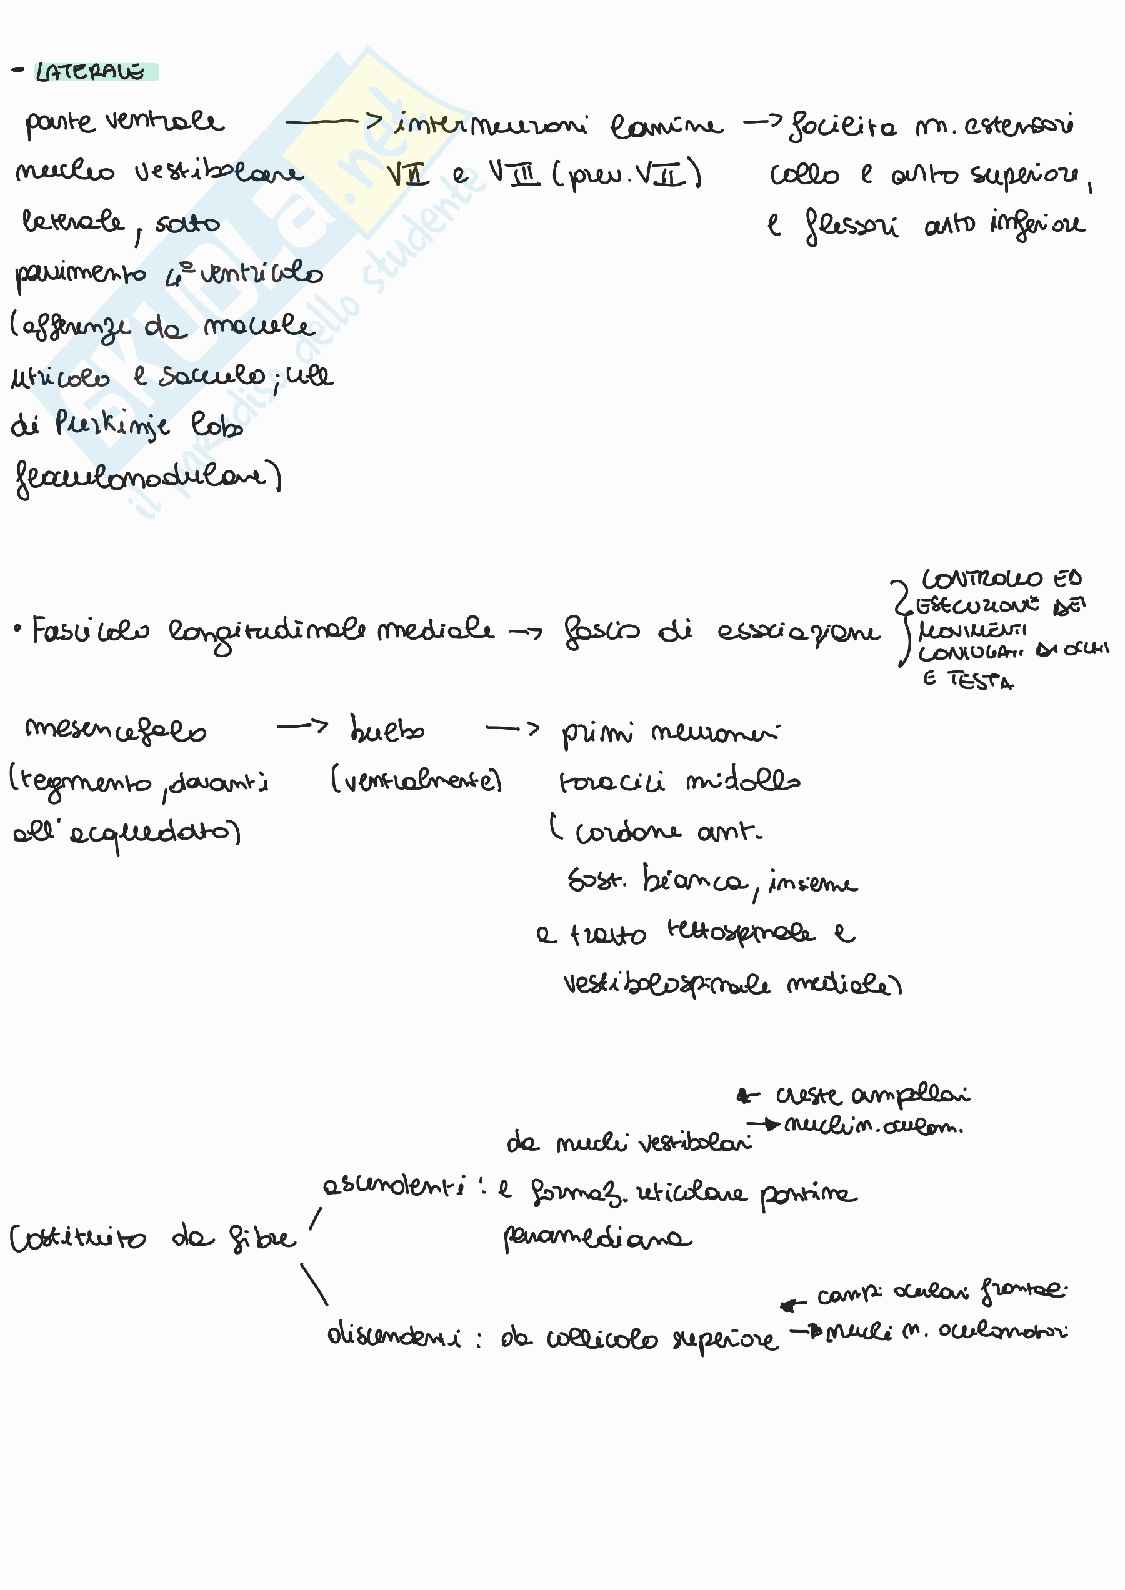 - LATERALE
parte ventrale → interneuroni lamine → facilita m. estensori
nucleo vestibolare VII e VIII (prev. VII) collo e arto superiore,
laterale, sotto e flessori arto inferiore
pavimento 4° ventricolo
(afferenze da macule
utricolo e sacculo; cell
di Purkinje lobo
flocculonodulare)
SKUOLA.net
il paradiso dello studente
• Fascicolo longitudinale mediale → fascio di associazione
CONTROLLO ED
ESECUZIONE DEI
MOVIMENTI
CONIUGATI DI OCCHI
E TESTA
mesencefalo → bulbo → primi neuromeri
(tegmento, davanti (ventralmente) toracici midollo
all'acquedotto) (cordone ant.
sost. bianca, insieme
a tratto tettospinale e
vestibolospinale mediale)
← creste ampollari
da nuclei vestibolari → nuclei n. oculom.
ascendenti: e formaz. reticolare pontina
Costituito da fibre paramediana
← campi oculari frontali
discendenti: da collicolo superiore → nuclei n. oculomotori